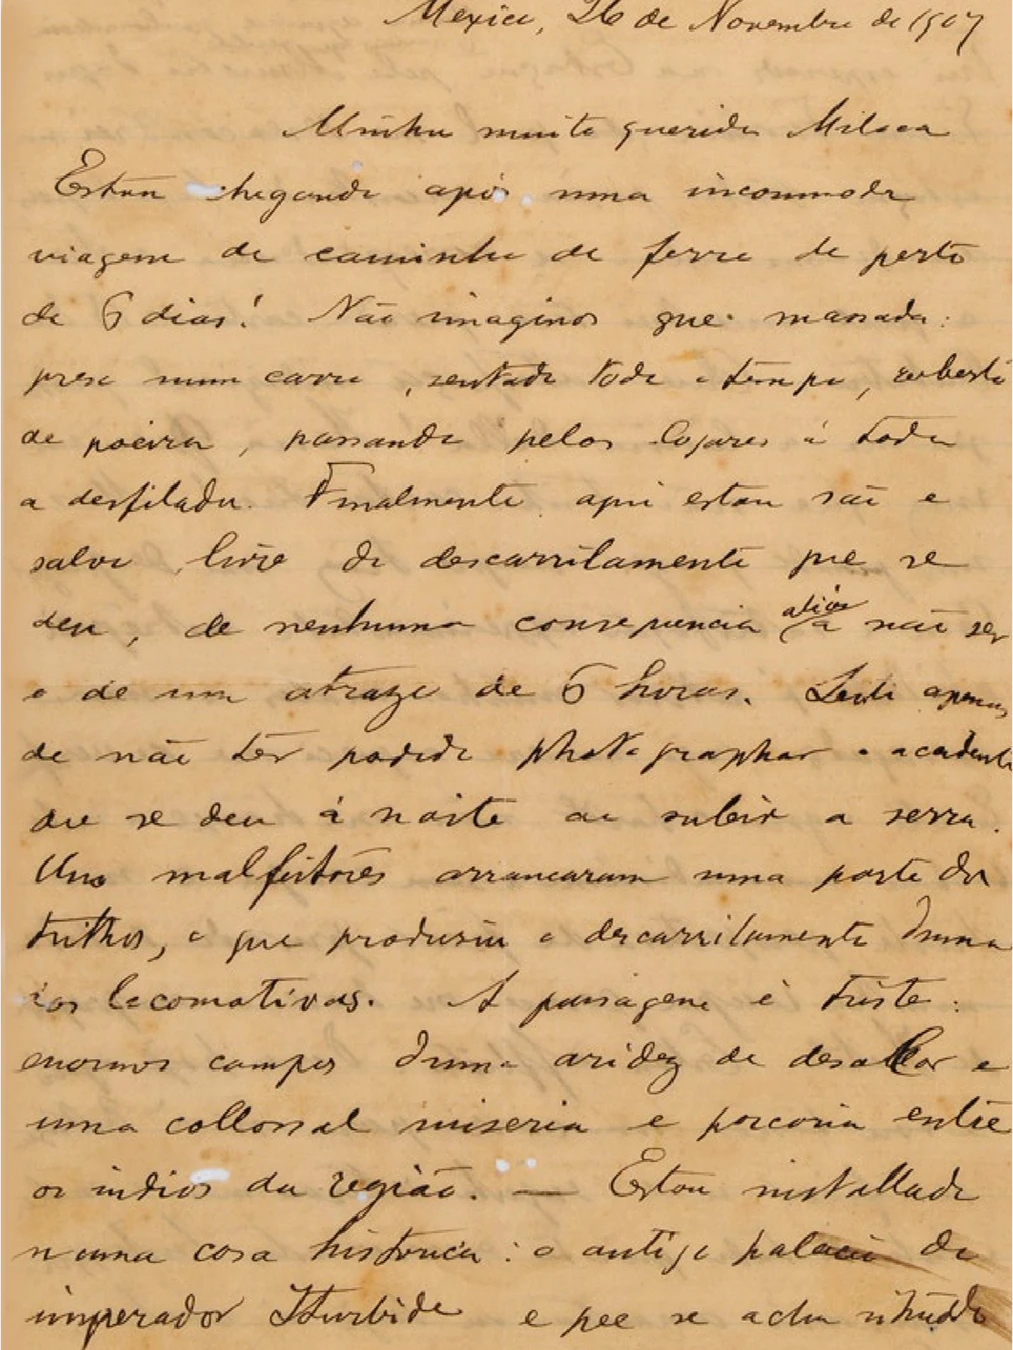 Mexico, 26 de Novembro de 1907
Minha muito querida
Estou chegando após uma incommoda
viagem de caminho de ferro de perto
de 6 dias! Não imaginas que massada:
preso num carro, sentado todo o tempo, coberto
de poeira, passando pelos logares á toda
a desfilada. Finalmente aqui estou são e
salvo, livre do descarrilamento que se
deu, de nenhuma consequencia aliás a não ser
o de um atrazo de 6 horas. Senti apenas
de não ter podido photographar o accidente
que se deu á noite ao subir a serra.
Uns malfeitores arrancaram uma parte dos
trilhos, o que produziu o descarrilamento duma
das locomotivas. A paisagem é triste:
enormes campos duma aridez de desolar e
uma collossal miseria e porcaria entre
os indios da região. — Estou installado
n'uma casa historica: o antigo palacio do
imperador Iturbide e que se acha situado